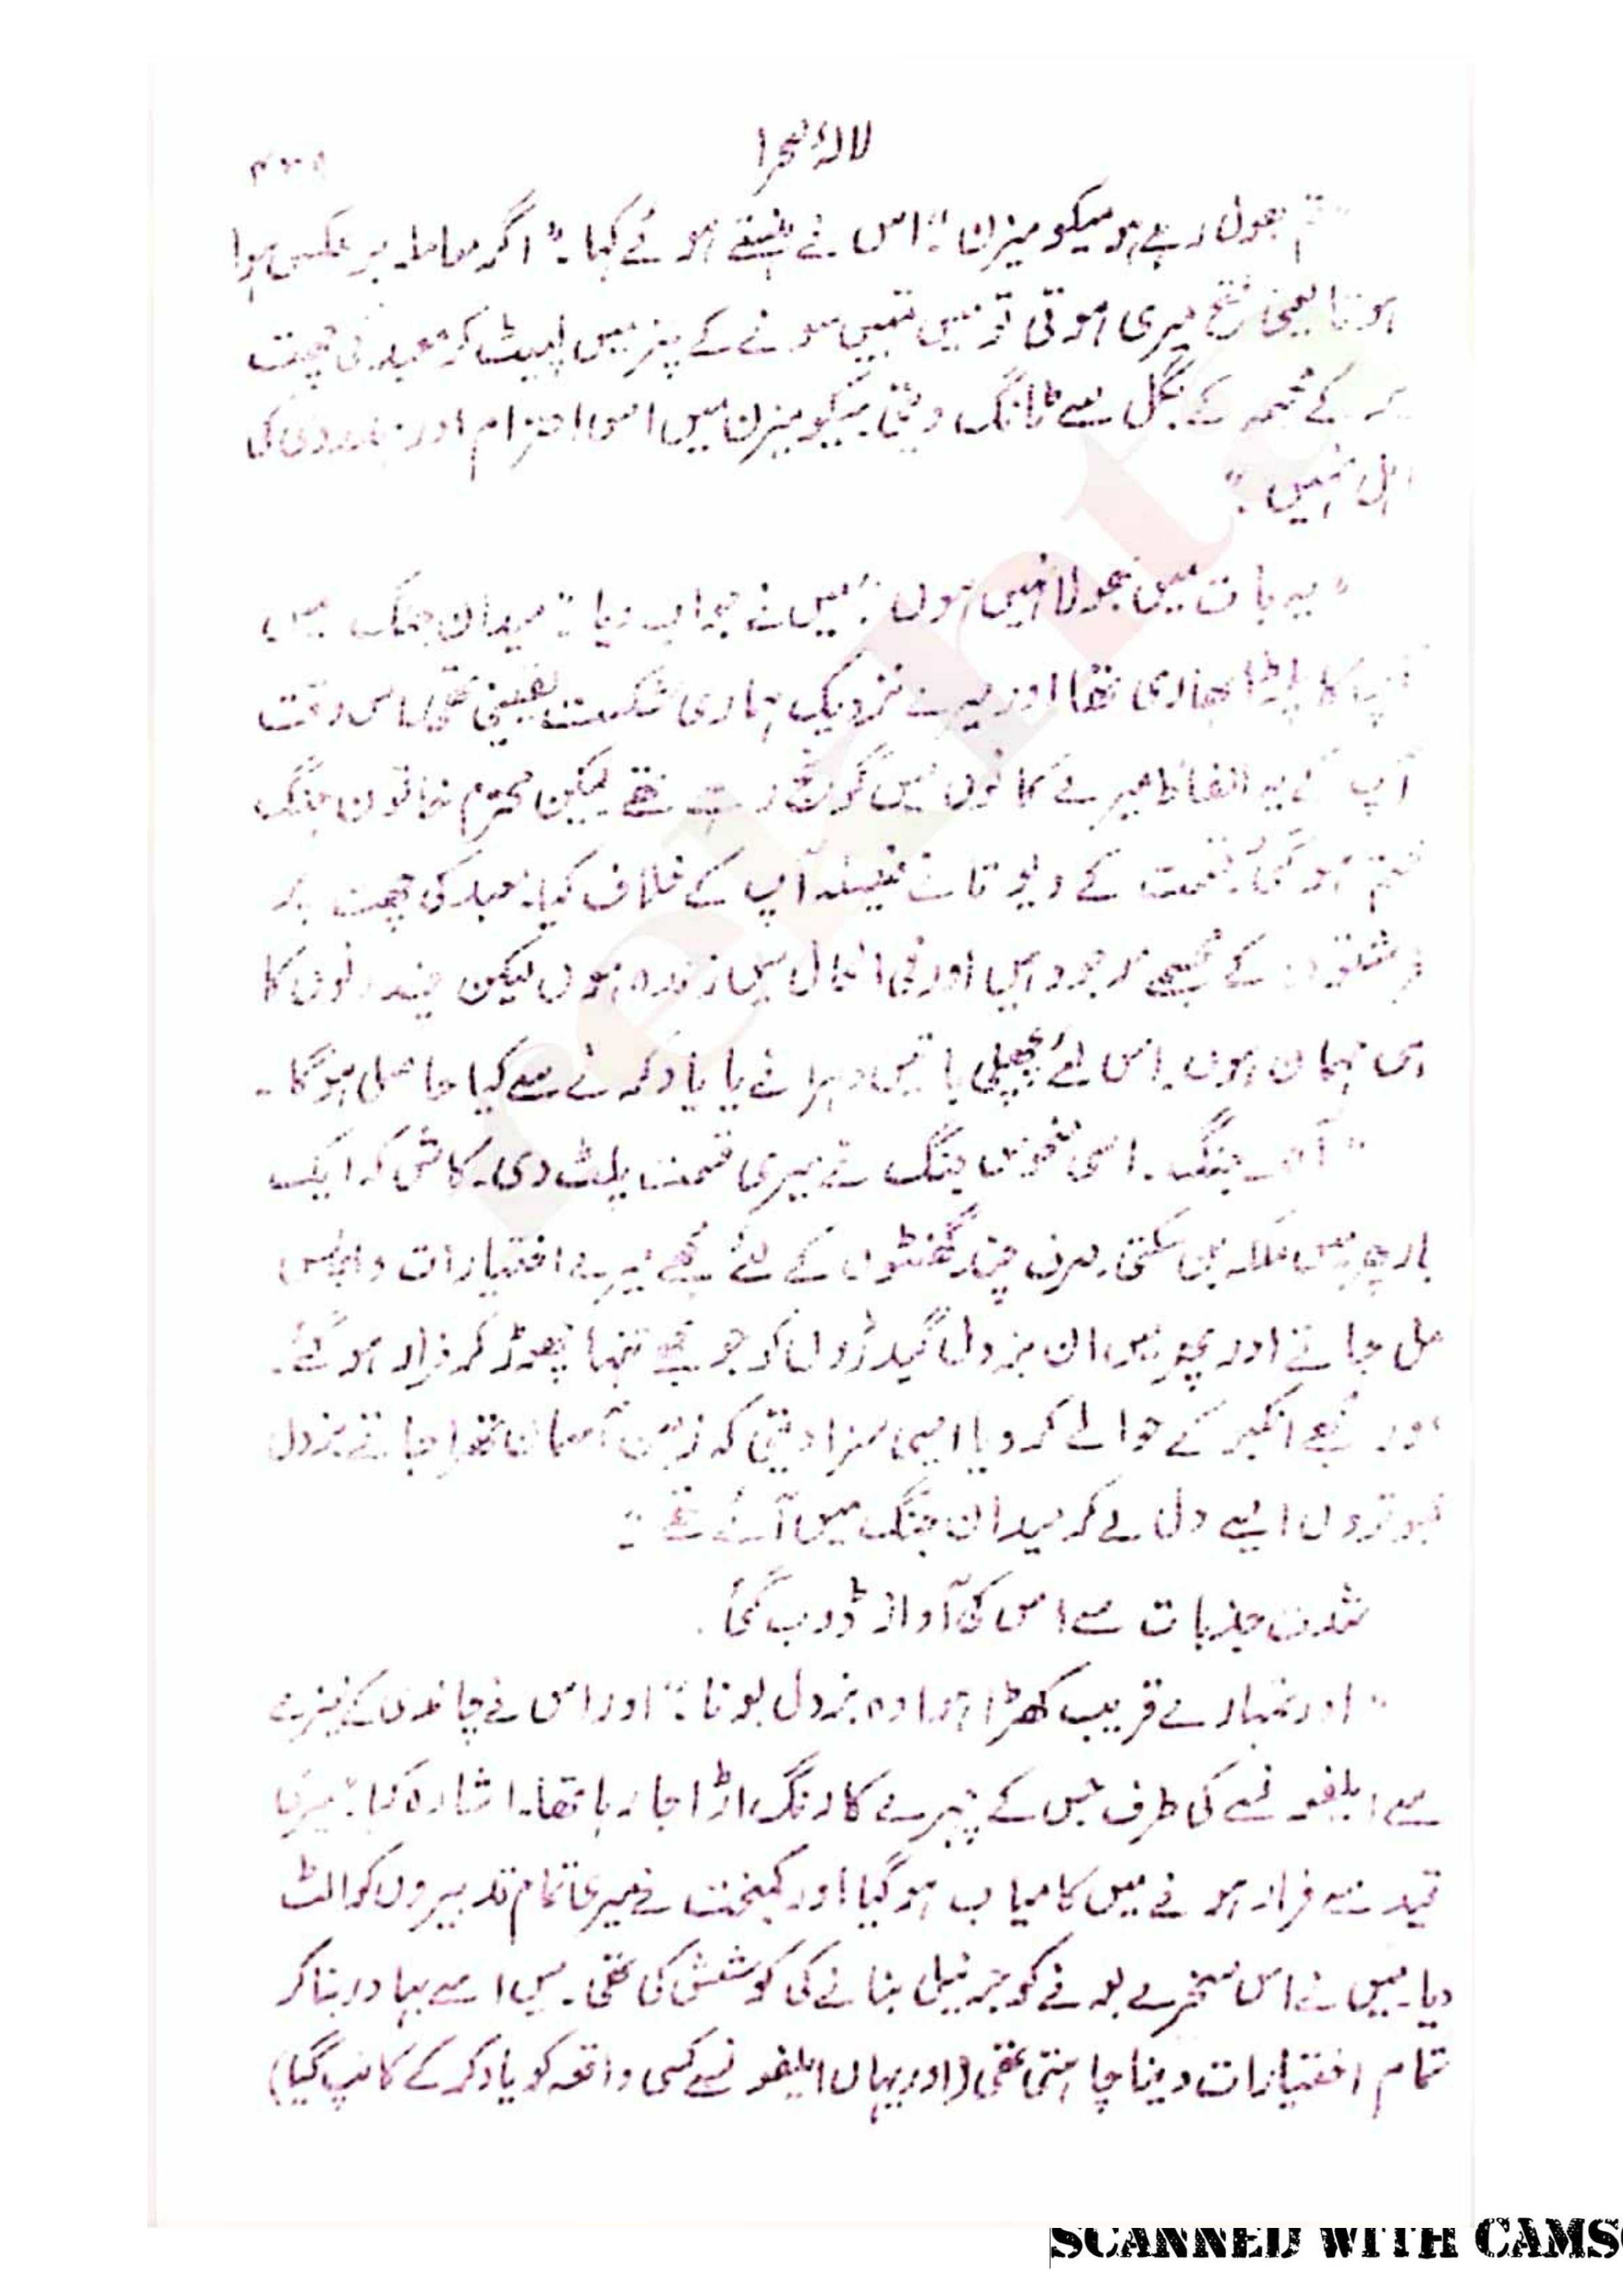 لالۂ صحرا
"تم بھول رہے ہو میکومیزن" اس نے ہنستے ہوئے کہا۔ "اگر معاملہ برعکس ہوا
ہوتا یعنی فتح میری ہوتی تو میں تمہیں سونے کے پتر میں لپیٹ کر معبد کی چھت
پر کے مجسمہ کے بگل سے ٹانگ دیتی میکومیزن میں اس احترام اور ہمدردی کی
اہل نہیں"
"یہ بات میں بھولا نہیں ہوں" میں نے جواب دیا "میدان جنگ میں
آپ کا پلڑا بھاری تھا اور میرے نزدیک ہماری شکست یقینی تھی اس وقت
آپ کے یہ الفاظ میرے کانوں میں گونج رہے تھے لیکن محترم خاتون جنگ
ختم ہو گئی قسمت کے دیوتا نے فیصلہ آپ کے خلاف کیا۔ معبد کی چھت پر
فرشتوں کے مجسمے موجود ہیں اور فی الحال میں زندہ ہوں لیکن چند دنوں کا
ہی مہمان ہوں۔ اس لئے پچھلی باتیں دہرانے یا یاد کرنے سے کیا حاصل ہو گا۔
"آہ جنگ۔ اسی منحوس جنگ نے میری قسمت پلٹ دی۔ کاش کہ ایک
بار پھر میں ملکہ بن سکتی۔ صرف چند گھنٹوں کے لئے مجھے میرے اختیارات واپس
مل جاتے اور پھر میں ان بزدل گیدڑوں کو جو مجھے تنہا چھوڑ کر فرار ہو گئے۔
اور مجھے انکیر کے حوالے کر دیا ایسی سزا دیتی کہ زمین آسمان تھرا جاتے بزدل
کبوتروں ایسے دل لے کر میدان جنگ میں آئے تھے"
شدت جذبات سے اس کی آواز ڈوب گئی۔
"اور تمہارے قریب کھڑا ہوا وہ بزدل بونا" اور اس نے چاندی کے نیزے
سے ایلفونسے کی طرف جس کے چہرے کا رنگ اڑا جا رہا تھا۔ اشارہ کیا "میری
قید سے فرار ہونے میں کامیاب ہو گیا اور کمبخت نے میری تمام تدبیروں کو الٹ
دیا۔ میں نے اس مسخرے بونے کو جرنیل بنانے کی کوشش کی تھی۔ میں اسے بہادر بنا کر
تمام اختیارات دینا چاہتی تھی (اور یہاں ایلفونسے کسی واقعہ کو یاد کر کے کانپ گیا)
SCANNED WITH CAMS